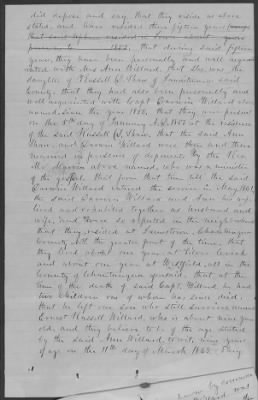 did depose and say, that they reside as above
stated, and have resided there fifteen years (except
that said resided in Iowa about years
previous to 1855, that during said fifteen
years, they have been personally and well acquainted
with Ann Willard, that she was the
daughter of Russell D. Shaw of Jamestown, said
County that they had also been personally and
well acquainted with Capt Darwin Willard above
named, since the year 1852, that they were present
on the 8th day of January, 1852 at the residence
of the said Russell D. Shaw, that the said Ann
Shaw, and Darwin Willard were then and there
married in presence of deponents by the Rev.
Mr. above named, who was a minister
of the gospel. that from that time till the said
Darwin Willard entered the service in May 1861,
the said Darwin Willard and Ann his wife
lived and cohabited together as husband and
wife, and were so reputed in the neighborhood
that they resided at Jamestown, Chautauqua
County, till the greater part of the time, that
they lived about one year at Silver Creek
and about one year at Westfield, all in the
County of Chautauqua aforesaid, that at the
time of the death of said Capt. Willard, he had
two children one of whom has since died,
that he left one son who still survives named
Ernest Russell Willard, who is about nine years
old, and they believe to be of the age stated
by the said Ann Willard, to wit, nine years
of age on the 11th day of March 1863. They
known by common
was
the